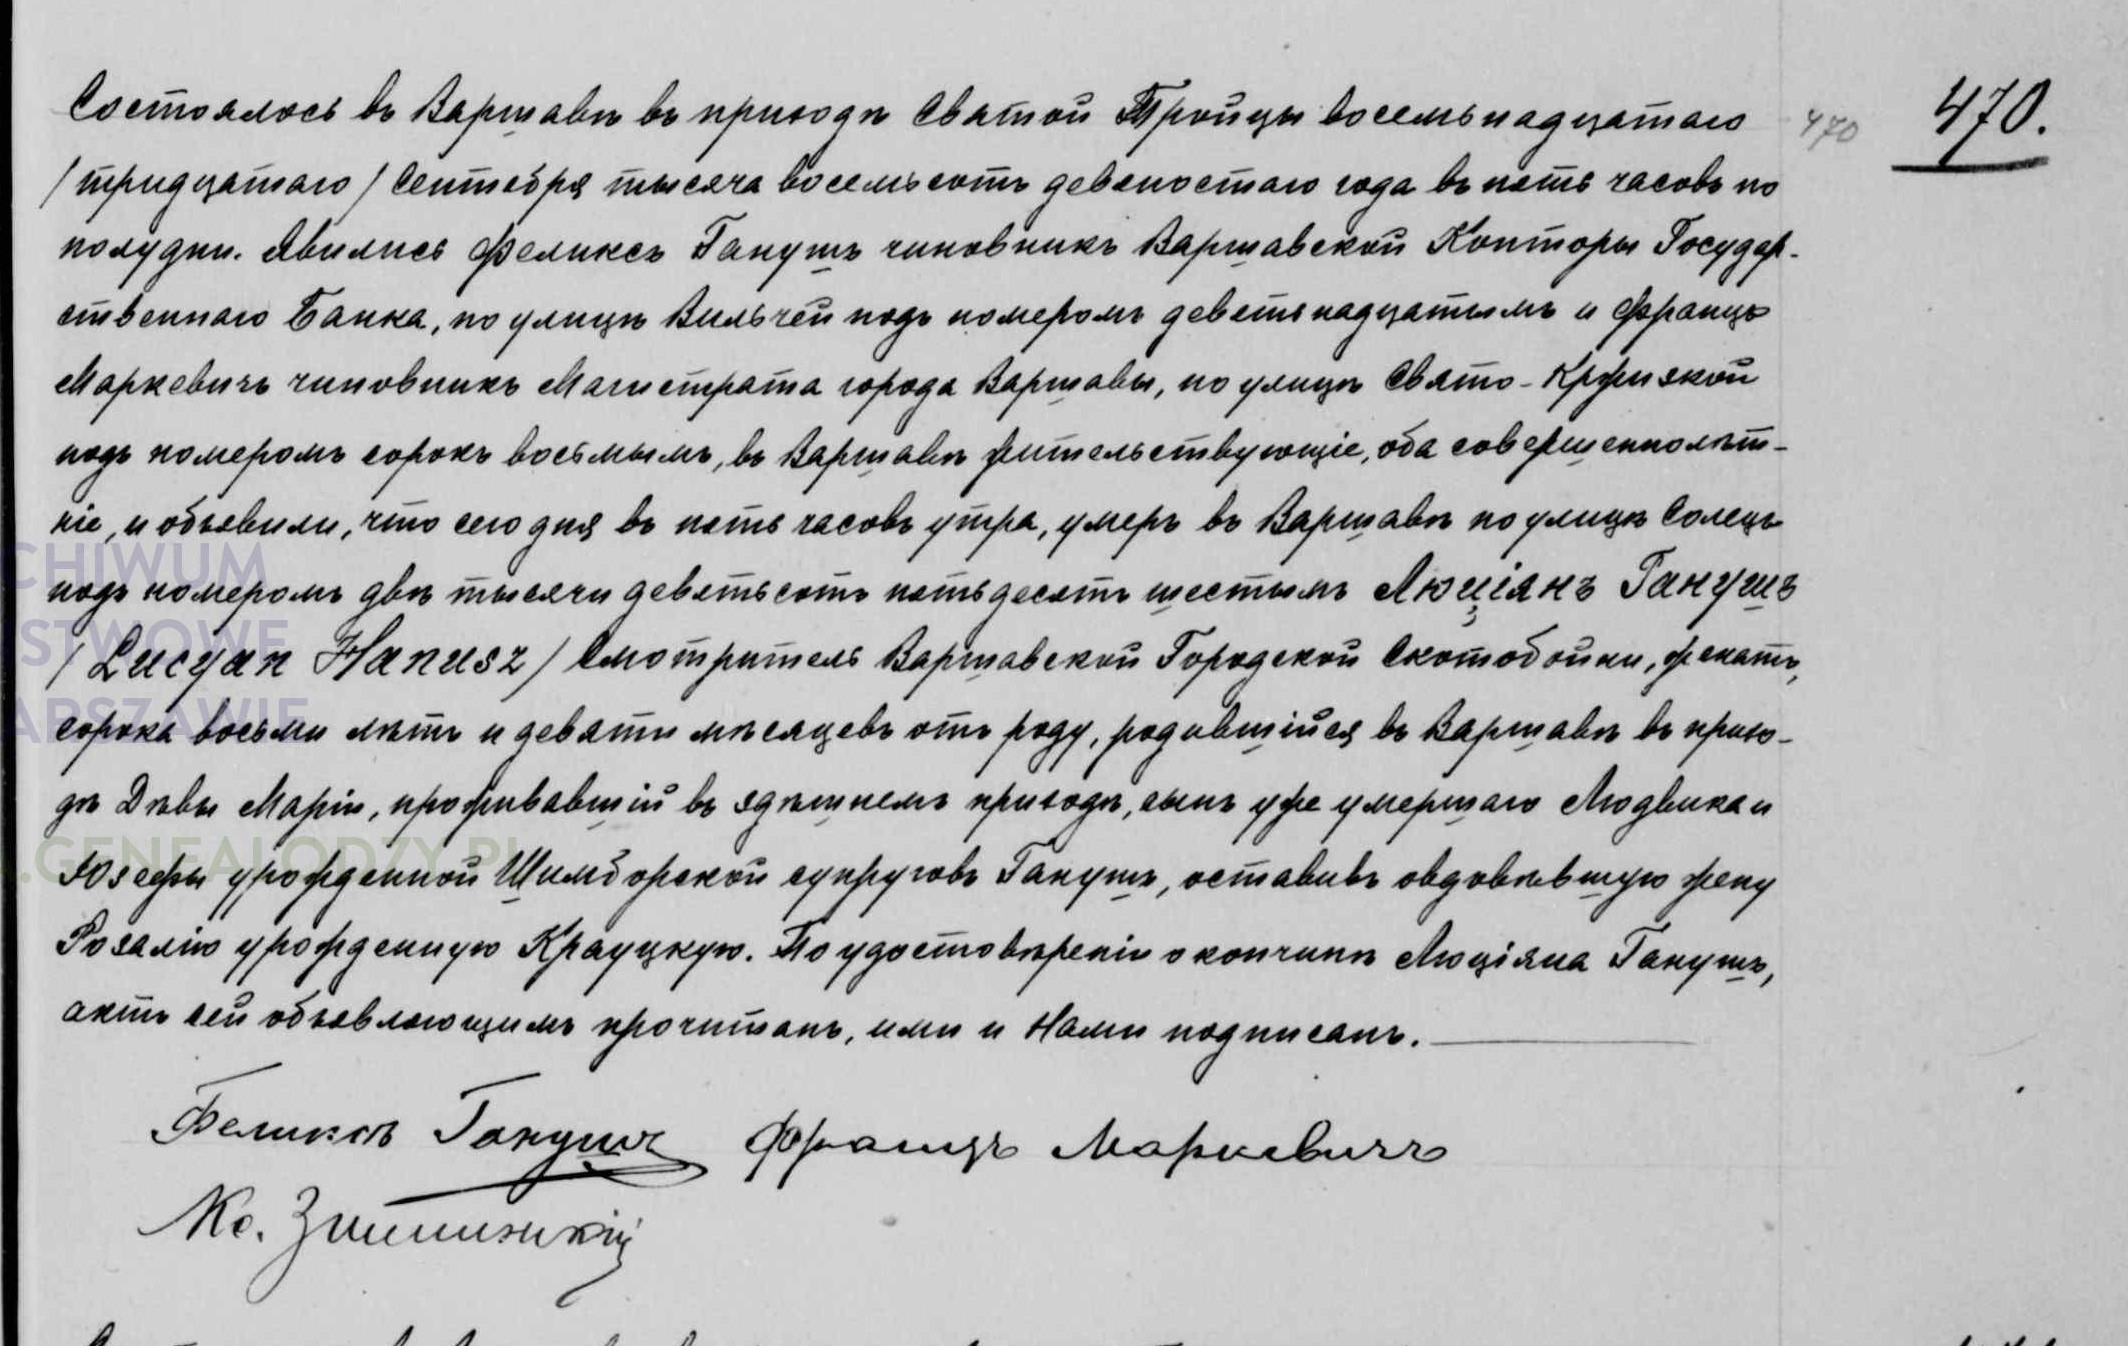 470.
470
Состоялось въ Варшавѣ въ приходѣ Святой Тройцы восемьнадцатаго
/тридцатаго/ Сентября тысяча восемьсотъ девяностаго года въ пять часовъ по
полудни. Явились Феликсъ Ганушъ чиновникъ Варшавской Конторы Государ-
ственнаго Банка, по улицѣ Вильчей подъ номеромъ девятьнадцатымъ и Францъ
Маркевичъ чиновникъ Магистрата города Варшавы, по улицѣ Свято-Кржизкой
подъ номеромъ сорокъ восьмымъ, въ Варшавѣ жительствующіе, оба совершеннолѣт-
ніе, и объявили, что сего дня въ пять часовъ утра, умеръ въ Варшавѣ по улицѣ Солецъ
подъ номеромъ двѣ тысячи девятьсотъ пятьдесятъ шестымъ Люціянъ Ганушъ
/Lucyan Hanusz/ Смотритель Варшавской Городской Скотобойни, женатъ,
сорока восьми лѣтъ и девяти мѣсяцевъ отъ роду, родившійся въ Варшавѣ въ прихо-
дѣ Дѣвы Маріи, проживавшій въ здѣшнемъ приходѣ, сынъ уже умершаго Людвика и
Юзефы урожденной Шимборской супруговъ Ганушъ, оставивъ овдовѣвшую жену
Розалію урожденную Крауцкую. По удостовѣреніи о кончинѣ Люціяна Ганушъ,
актъ сей объявляющимъ прочитанъ, ими и Нами подписанъ.
Феликсъ Ганушъ Францъ Маркевичъ
Кс.
CHIWUM
STWOWE
ARSZAWIE
.GENEALODZY.PL